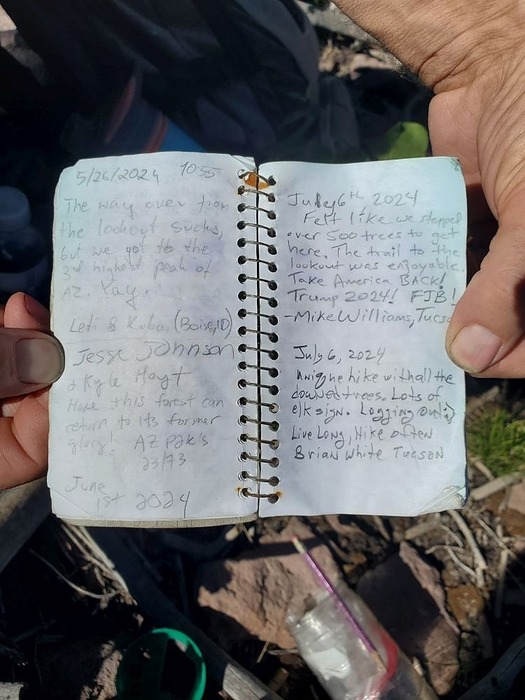 5/26/2024 10:55
The way over from
the lookout sucks,
but we got to the
3rd highest peak of
AZ. Yay!
Leti & Kuba (Boise, ID)
Jesse Johnson
& Kyle Hoyt
Hope this forest can
return to its former
glory! AZ P2K's
23/73
June
1st 2024
July 6th 2024
Felt like we stepped
over 500 trees to get
here. The trail to the
lookout was enjoyable.
Take America BACK!
Trump 2024! FJB!
-Mike Williams, Tucso
July 6, 2024
unique hike with all the
downed trees. Lots of
elk sign. Logging out :)
Live Long, Hike often
Brian White Tucson